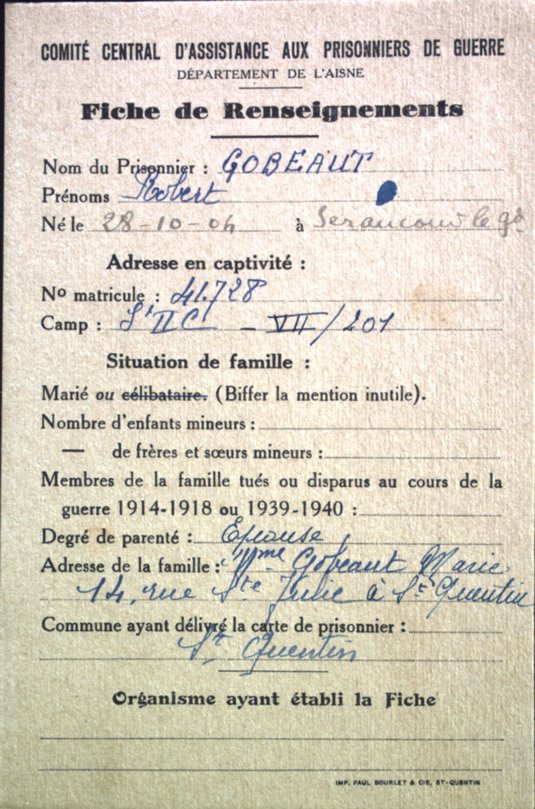 COMITÉ CENTRAL D'ASSISTANCE AUX PRISONNIERS DE GUERRE
DÉPARTEMENT DE L'AISNE
Fiche de Renseignements
Nom du Prisonnier : GOBEAUT
Prénoms Robert
Né le 28-10-04 à Serancourt le gd
Adresse en captivité :
No matricule : 41.728
Camp : S'IIC - VII/201
Situation de famille :
Marié ou célibataire. (Biffer la mention inutile).
Nombre d'enfants mineurs :
— de frères et sœurs mineurs :
Membres de la famille tués ou disparus au cours de la
guerre 1914-1918 ou 1939-1940 :
Degré de parenté : Epouse
Adresse de la famille : Mme Gobeaut Marie
14, rue Ste Julie à St Quentin
Commune ayant délivré la carte de prisonnier :
St Quentin
Organisme ayant établi la Fiche
IMP. PAUL BOURLET & CIE, ST-QUENTIN